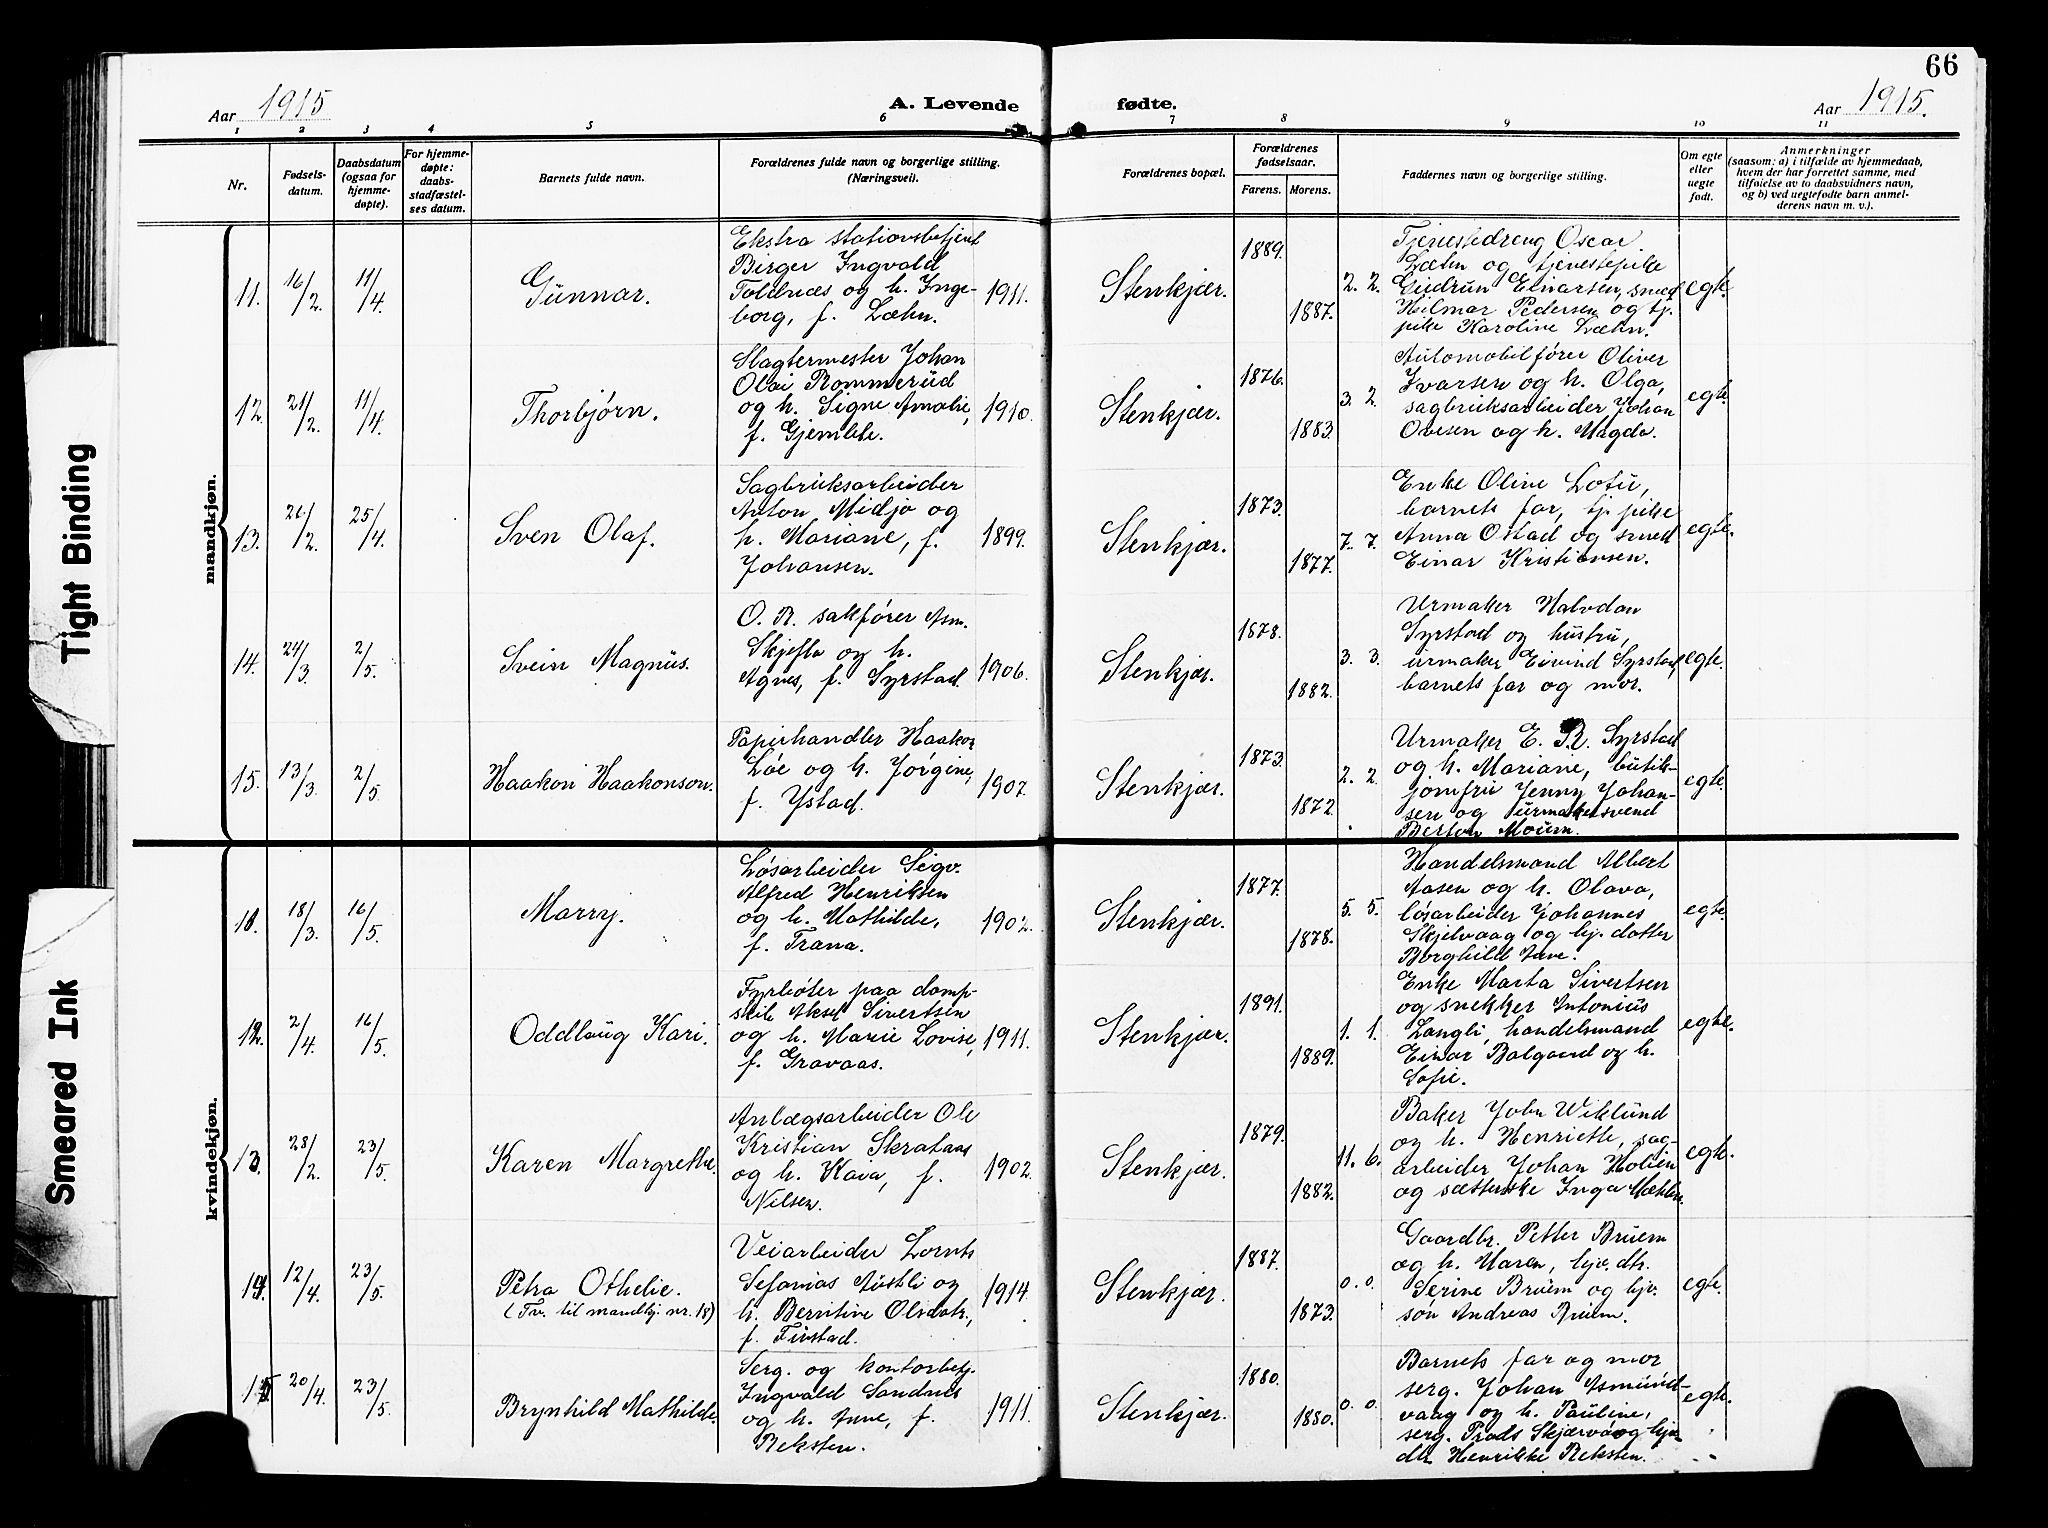 66
Aar 1915
A. Levende fødte.
Aar 1915.
1 2 3 4 5 6 7 8 9 10 11
Nr.
Fødsels-
datum.
Daabsdatum
(ogsaa for
hjemme-
døpte).
For hjemme-
døpte:
daabs-
stadfæstel-
ses datum.
Barnets fulde navn.
Forældrenes fulde navn og borgerlige stilling.
(Næringsvei).
Forældrenes bopæl.
Forældrenes
fødselsaar.
Farens. Morens.
Faddernes navn og borgerlige stilling.
Om egte
eller
uegte
født.
Anmerkninger
(saasom: a) i tilfælde av hjemmedaab,
hvem der har forrettet samme, med
tilføielse av to daabsvidners navn,
og b) ved uegtefødte barn anmel-
derens navn m. v.).
mandkjøn.
11. 16/2. 11/4. Gunnar.
Ekstra stationsbetjent
Birger Ingvald
Toldnæs og h. Inge-
borg, f. Læhn.
1911. Stenkjær. 1889. 1887. 2. 2.
Tjenestedreng Oscar
Læhn og tjenestepike
Gudrun Einarsen, smed
Hilmar Pedersen og tj.
pike Karoline Læhn.
egte.
12. 21/2. 11/4. Thorbjørn.
Slagtermester Johan
Olai Rommerud
og h. Signe Amalie,
f. Gjemble.
1910. Stenkjær. 1876. 1883. 3. 2.
Automobilfører Oliver
Ivarsen og h. Olga,
sagbruksarbeider Johan
Ovesen og h. Magda.
egte.
13. 21/2. 25/4. Sven Olaf.
Sagbruksarbeider
Anton Midjo og
h. Mariane, f.
Johansen.
1899. Stenkjær. 1873. 1877. 7. 7.
Enke Oline
barnets far, tj. pike
Anna Ostad og smed
Einar Kristiansen.
egte.
14. 24/3. 2/5. Svein Magnus.
O. R. sakfører Asm.
Skjefte og h.
Agnes, f. Syrstad.
1906. Stenkjær. 1878. 1882. 3. 3.
Urmaker Halvdan
Syrstad og hustru,
urmaker Eivind Syrstad,
barnets far og mor.
egte.
15. 13/3. 2/5. Haakon Haakonson.
Papirhandler Haakon
Løe og h. Jørgine,
f. Ystad.
1907. Stenkjær. 1873. 1872. 2. 2.
Urmaker E. R. Syrstad
og h. Mariane, butik-
jomfru Jenny Johan-
sen og urmakersvend
Moum.
egte.
kvindekjøn.
11. 18/3. 16/5. Marry.
Løsarbeider Sigv.
Alfred Henriksen
og h. Mathilde,
f. Trana.
1902. Stenkjær. 1877. 1878. 5. 5.
Handelsmand Albert
Aasen og h. Olava,
løsarbeider Johannes
Skjelvaag og hj. datter
Borghild
egte.
12. 2/4. 16/5. Oddlaug Kari.
Fyrbøter paa damp-
skib Aksel Sivertsen
og h. Marie Lovise,
f. Gravaas.
1911. Stenkjær. 1891. 1889. 1. 1.
Enke Marta Sivertsen
og snekker Antonius
Langli, handelsmand
Einar Balgaard og h.
Sofie.
egte.
13. 28/2. 23/5. Karen Margrethe.
Anlægsarbeider Ole
Kristian Skrataas
og h. Kaia, f.
Nilsen.
1902. Stenkjær. 1879. 1882. 11. 6.
Baker John Wiklund
og h. Henriette, sag-
arbeider Johan Holien
og sætterske Inga
egte.
14. 12/4. 23/5. Petra Othelie.
(Tv. til mandkj. nr. 18)
Veiarbeider Lornts
Sefanias Austli og
h. Berntine Olsdatr.,
f. Finstad.
1914. Stenkjær. 1887. 1873. 0. 0.
Gaardbr. Petter Bruem
og h. Maren, hjv. dtr.
Serine Bruem og hjv.
søn Andreas Bruem.
egte.
15. 20/4. 23/5. Brynhild Mathilde.
Serg. og kontorbetj.
Ingvald Sandnes
og h. Anne, f.
Reksten.
1911. Stenkjær. 1880. 1880. 0. 0.
Barnets far og mor,
serg. Johan Asmund-
vaag og h. Pauline,
serg.
dtr. Henrikke Reksten.
egte.
Tight Binding
Smeared Ink